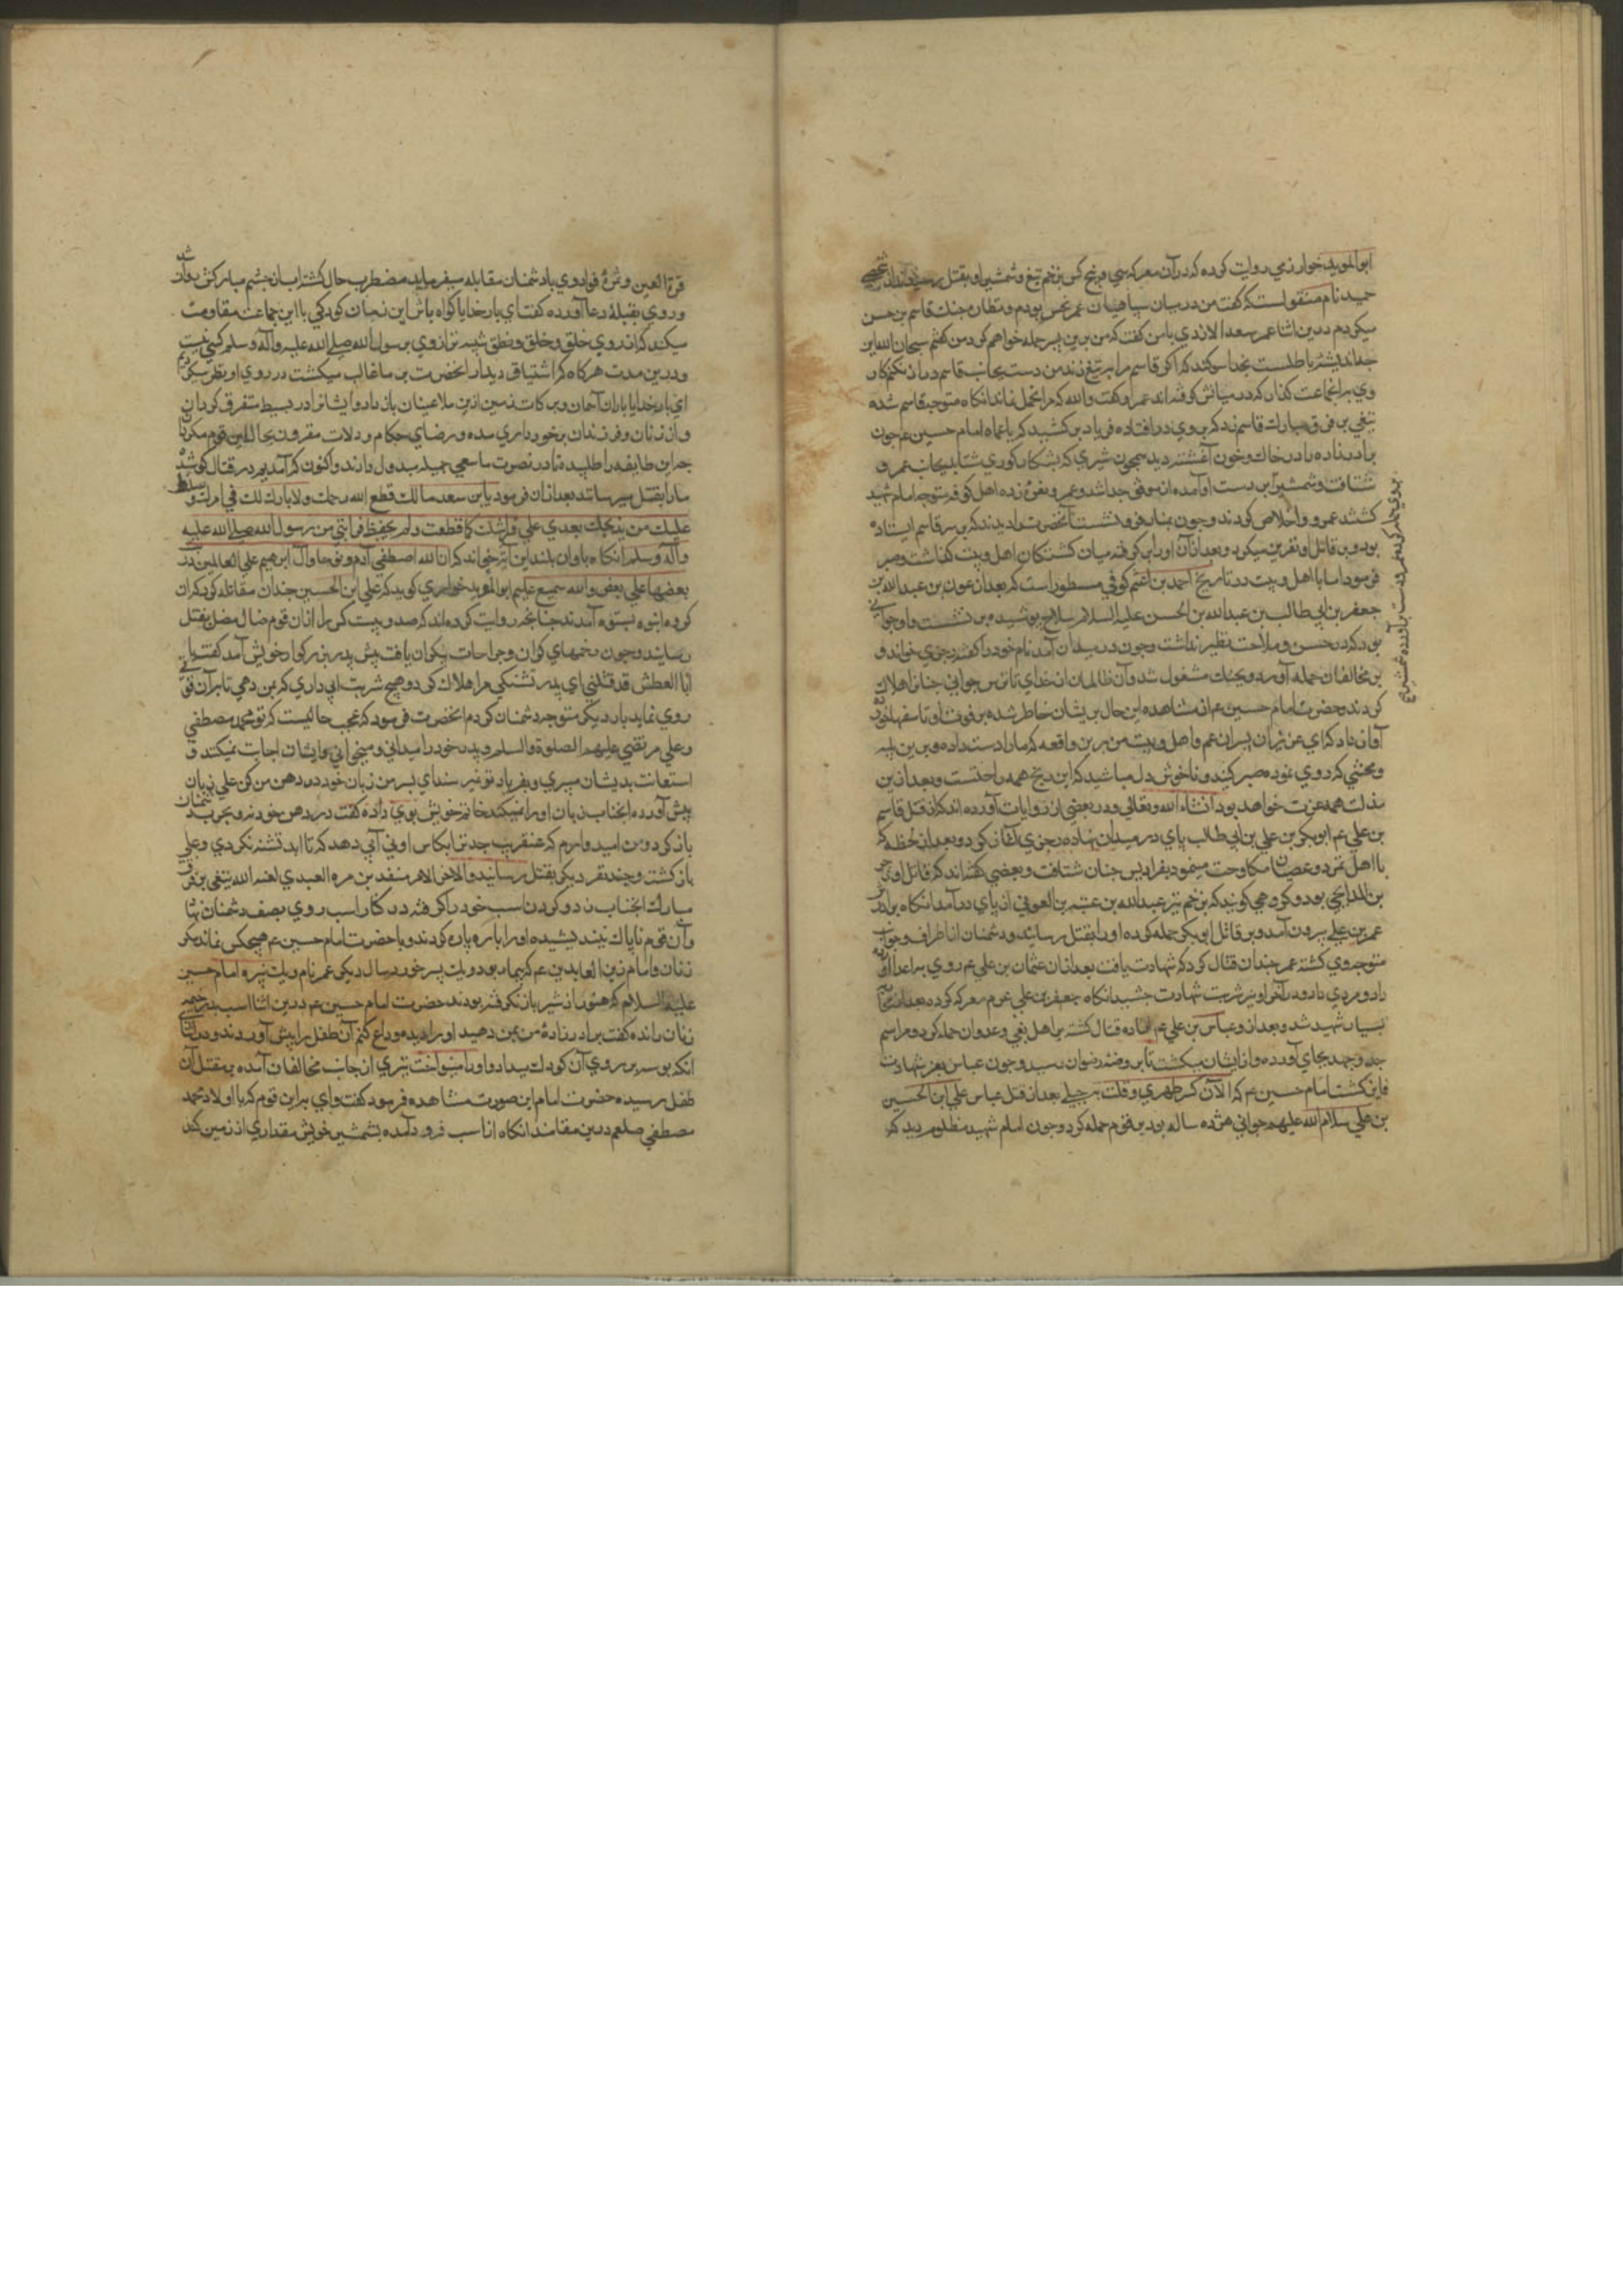 ابوالموید خوارزمی روایت کرده که در آن معرکه سی و پنج کس بزخم تیغ و شمشیر او بقتل رسیدند از شخصی
حمید نام منقولست که گفت من در میان سپاهیان عمر نحس بودم و نظاره جنک قاسم بن حسن
میکردم درین اثنا عمر سعد الازدی با من کفت که من برین پسر حمله خواهم کرد من گفتم سبحان الله این
چه اندیشهٔ باطلست بخدا سوکند که اکر قاسم مرا بتیغ زند من دست بجانب قاسم دراز نکنم کار
وی بر اینجماعت کذار که در میانش کرفته اند عمرو کفت والله که مرا تحمل نماند انکاه متوجه قاسم شده
تیغی بر فرق مبارک قاسم زد که بروی در افتاده فریاد بر کشید که یا عماه امام حسین ع چون
برادرزاده را در خاک و خون آغشته دید همچون شیری که بشکار کوری شتابد بجانب عمرو
شتافت و شمشیر بر دست او آمده از مرفق جدا شد و عمرو نعرهٔ زده اهل کوفه متوجه امام شهید
کشتند عمرو را خلاص کردند و چون غبار فرو نشست آنحضرت را دیدند که بر سر قاسم ایستاده
بود و بر قاتل او نفرین میکرد و بعد از آن او را بر کرفته میان کشتکان اهل و بیت کذاشت و صبر
فرمود اما با اهل و بیت در تاریخ احمد بن اعثم کوفی مسطور است که بعد از عون بن عبدالله بن
جعفر بن ابی طالب بن عبدالله بن الحسن علیه السلام سلاح پوشیده بر نشست و او جوانی
بود که در حسن و ملاحت نظیر نداشت و چون در میدان آمد نام خود را کفته رجزی خواند و
بر مخالفان حمله آورد و بجنک مشغول شد و آن ظالمان از خدای ناترس جوانی چنان را هلاک
کردند و حضرت امام حسین ع از مشاهده این حال پریشان خاطر شده بر فوت او تاسفها نمود
آواز داد که ای عزیزان پسران عم و اهل و بیت من برین واقعه که ما را دست داده و برین بلیه
و محنتی که روی نموده صبر کنید و ناخوش دل مباشید که این رنج همه راحتست و بعد ازین
مذلت همه عزت خواهد بود انشاء الله و تعالی و در بعضی از روایات آورده اند که از قتل قاسم
بن علی ع ابوبکر بن علی بن ابی طالب پای در میدان نهاده رجزی آغاز کرد و بعد از لحظه که
با اهل تمرد و عصیان مکاوحت مینمود بفرادیس جنان شتافت و بعضی کفته اند که قاتل او زجر
بن بود و کروهی کویند که بزخم تیر عبدالله بن عتبه بن العوفی از پای در آمد انکاه برادر
عمر بن علی بیرون آمد و بر قاتل ابوبکر حمله کرده او را بقتل رسانید و دشمنان از اطراف و جوانب
متوجه وی کشته عمر چندان قتال کرد که شهادت یافت بعد از آن عثمان بن علی ع روی بر اعدا آورده
داد مردی داد و در آخر او نیز شربت شهادت چشید انکاه جعفر بن علی عزم معرکه کرده بعد از محاربه
بسیار شهید شد و بعد از و عباس بن علی ع آماده قتال کشته بر اهل بغی و عدوان حمله کرد و مراسم
جد و جهد بجای آورده و از ایشان میکشت تا بروضه رضوان رسید و چون عباس بعز شهادت
فایز کشت امام حسین ع که الآن کسر ظهری و قلت حیلتی بعد از قتل عباس علی ابن الحسین
بن علی سلام الله علیهم جوانی هژده ساله بود بر قوم حمله کرد و چون امام شهید مظلوم دید که
قرة العین و ثمرهٔ فواد وی با دشمنان مقابله میفرماید مضطرب حال کشته اب از چشم مبارکش روان شد
و روی بقبلهٔ دعا آورده کفت ای بار خدایا کواه باش این زمان کودکی با این جماعت مقاومت
میکند که از روی خلق و خلق و نطق شبیه تر از وی برسول الله صلی الله علیه و آله و سلم کسی نیست
و درین مدت هر کاه که اشتیاق دیدار آنحضرت بر ما غالب میکشت در روی او نظر میکردیم
ای بار خدایا باران آسمان و برکات زمین ازین ملاعینان باز دار و ایشانرا در بسیط متفرق کردان
و از زنان و فرزندان برخورداری مده و رضای حکام و ولات مقرون بحال این قوم مکردان
چه این طایفه ما را طلبیدند تا در نصرت ما سعی جمیله مبذول دارند و اکنون که آمدیم در قتال کوشیده
ما را بقتل میرسانند بعد از آن فرمود یا بن سعد مالک قطع الله رحمک ولا بارک لک فی امرک و سلط
علیک من یذبحک بعدی علی فراشک کما قطعت ولم یحفظ قرابتی من رسول الله صلی الله علیه
و آله و سلم انکاه باواز بلند این آیه خواند که ان الله اصطفی آدم و نوحا و آل ابراهیم علی العالمین ذریة
بعضها علی بعض والله سمیع علیم ابوالموید خوارزمی کوید که علی ابن الحسین چندان مقاتله کرد که از ان
کروه انبوه بستوه آمدند چنانچه روایت کرده اند که صد و بیست کس را از ان قوم ضال مضل بقتل
رسانید و چون زخمهای کران و جراحات بیکران یافت پیش پدر بزرکوار خویش آمد کفت یا
ابا العطش قد قتلنی ای پدر تشنکی مرا هلاک کرد هیچ شربت آبی داری که بمن دهی تا بر آن قوتی
روی نماید بار دیکر متوجه دشمنان کردم آنحضرت فرمود که عجب حالیست که تو محمد مصطفی
و علی مرتضی علیهم الصلوة والسلام و پدر خود را میدانی و میخوانی و ایشان اجابت نمیکنند و
استعانت بدیشان میبری و بفریاد تو نمیرسند ای پسر من زبان خود در دهن من کن علی زبان
پیش آورده آنجناب زبان او را میکند خاتم خویش بوی داده کفت در دهن خود نه و بحرب دشمنان
باز کرد و من امیدوارم که عنقریب جد ترا بکاس اوفی آبی دهد که تا ابد تشنه نکردی و علی
باز کشته و چند نفر دیکر بقتل رسانید و الاخر الامر منقذ بن مره العبدی لعنه الله تیغی بر فرق
مبارک آنجناب زد و کردن اسب خود را کرفته در کنار اسب روی بصف دشمنان نها
و آن قوم ناپاک تیغ کشیده او را پاره پاره کردند و با حضرت امام حسین ع هیچ کس نماند مکر
زنان و امام زین العابدین ع که بیمار بود و یک پسر خورد سال دیکر عمر نام و یک پسره امام حسین
علیه السلام که هنوز از شیر باز نکرفته بودند حضرت امام حسین ع درین اثنا اسب بدر خیمه
زنان رانده کفت برادرزادهٔ من بمن دهید او را دیده وداع کنم آن طفل را پیش آوردند و در اثنا
انکه بوسه بر روی آن کودک میداد و او را مینواخت تیری از جانب مخالفان آمده بمقتل آن
طفل رسیده حضرت امام این صورت مشاهده فرمود کفت وای بر این قوم که با اولاد محمد
مصطفی صلعم درین مقامند انکاه از اسب فرود آمده بشمشیر خویش مقداری از زمین کند